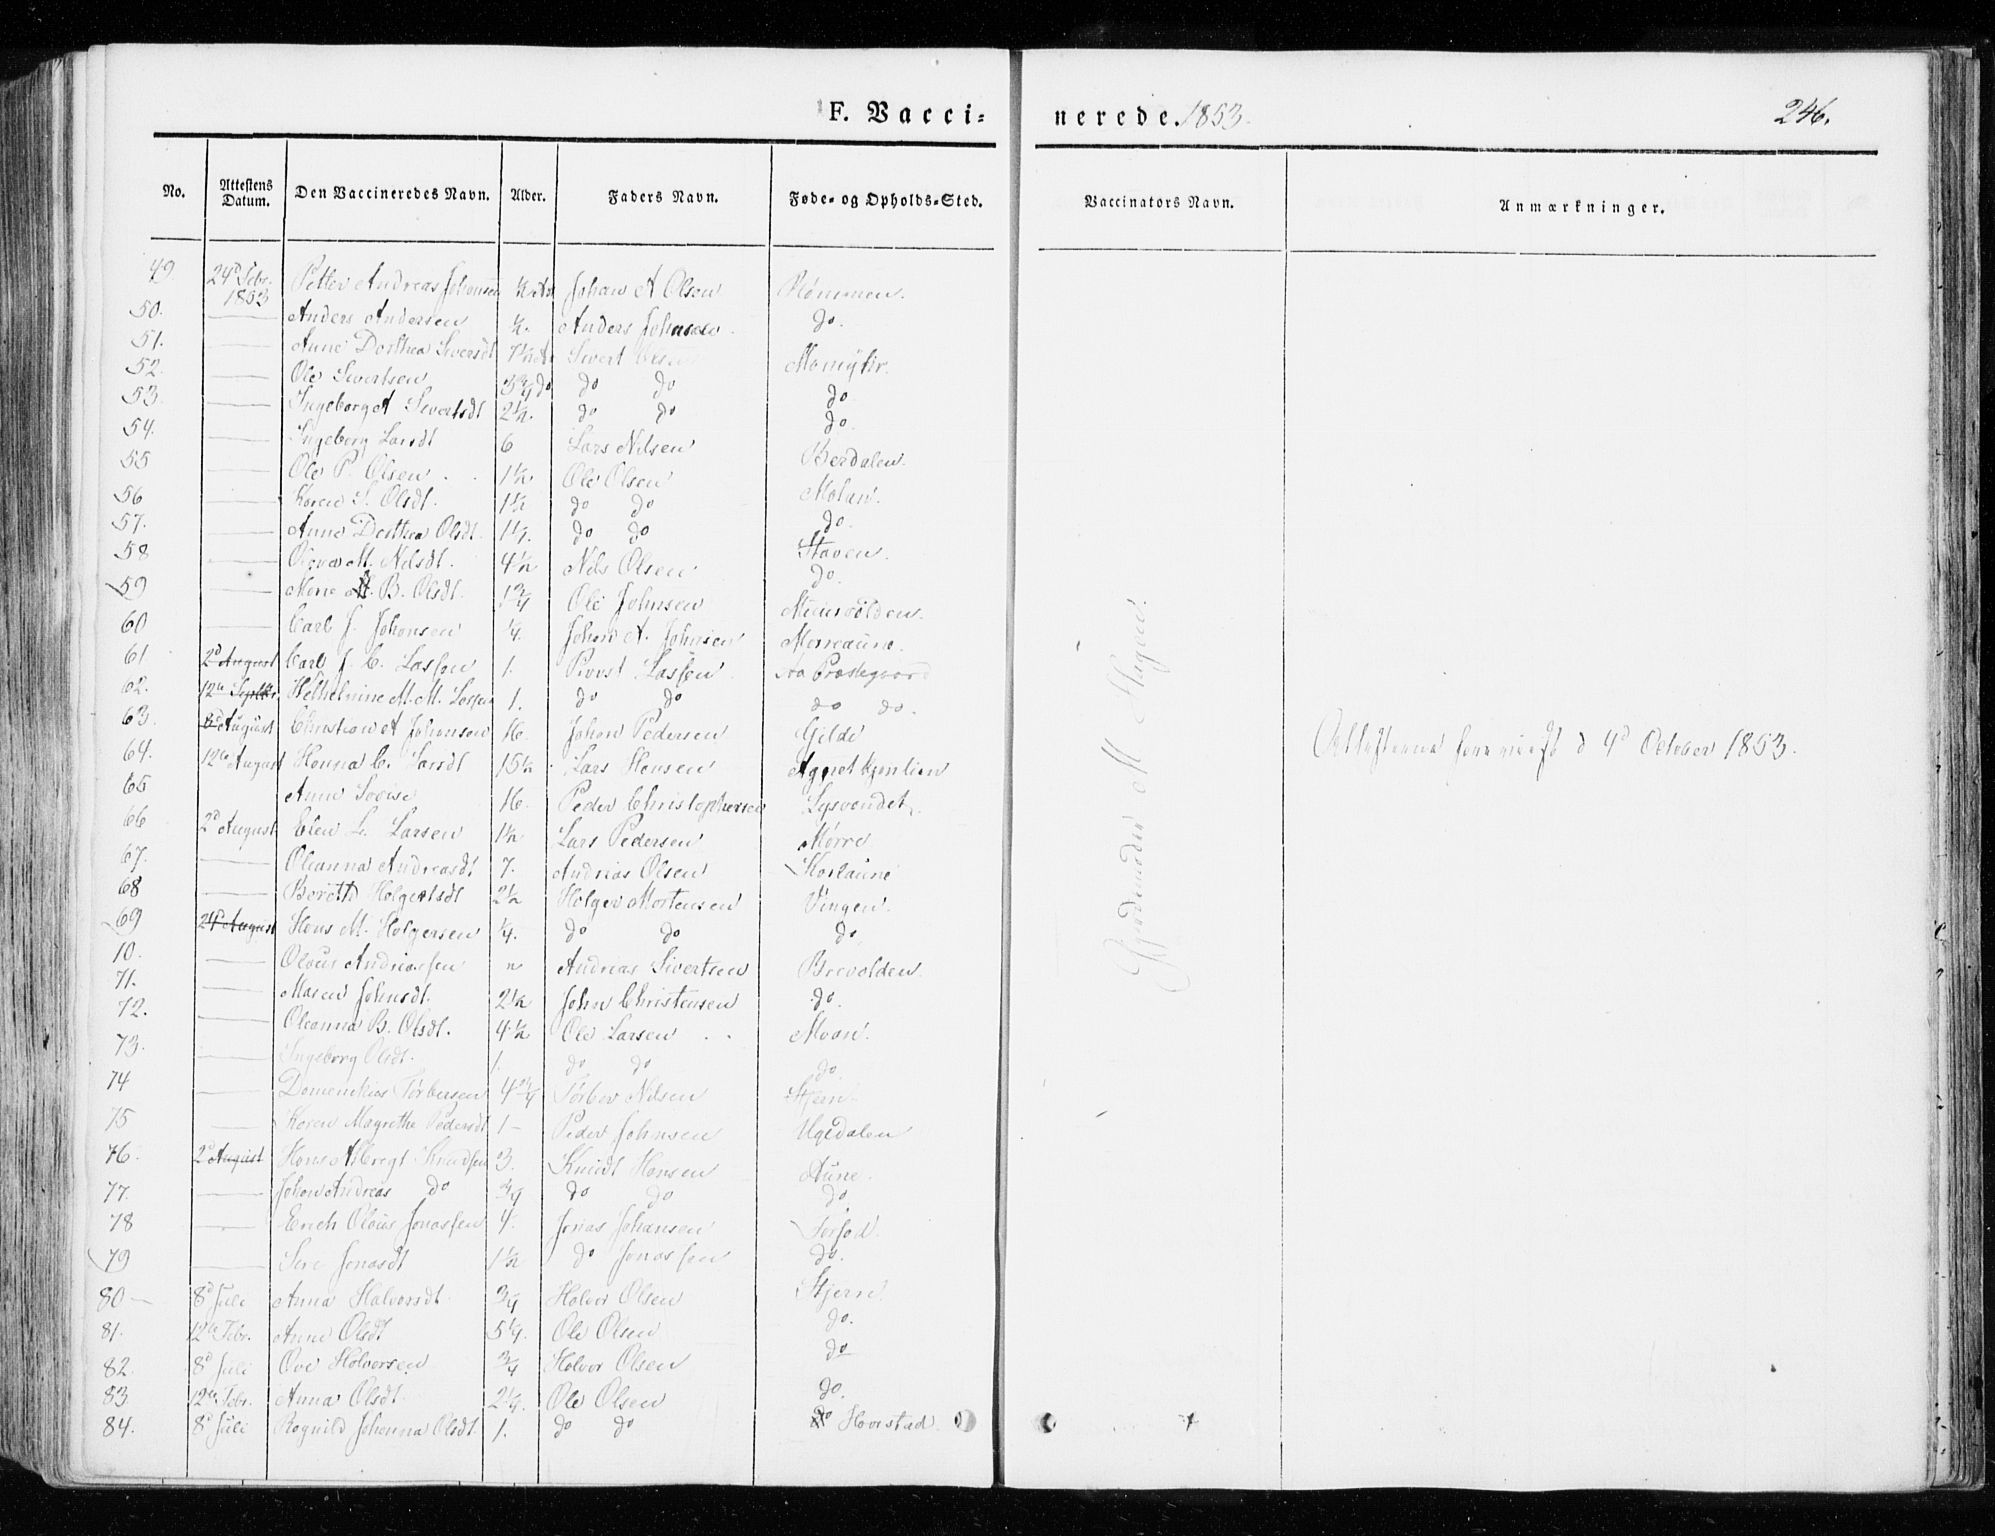 F. Vacci= nerede. 1853. 246.
No. Attestens Datum. Den Vaccineredes Navn. Alder. Faders Navn. Føde- og Opholds-Sted. Vaccinators Navn. Anmærkninger.
49. 24d Febr. 1853 Petter Andreas Johansen Johan A Olsen
50. — Anders Andersen ½. Anders Johnsen do.
51. — Anne Dorthea Seversdt Sivert Olsen
52. — Ole Sivertsen 3¾ do do do do
53. — Ingeborg A Sivertsdt 2½. do do do
54. — Ingeborg Larsdt 6 Lars Nilsen Berdalen.
55 — Ole P. Olsen 1½ Ole Olsen
56 — Karen S. Olsdt. 1½ do do do.
57. — Anne Dorthea Olsdt. do do
58 — M. Nilsdt. 4½ Nils Olsen do.
59 — B. Olsdt. 1¾ Ole Johnsen
60 — Carl J. Johansen ¼. Johan A. Johnsen
61. 2d August Carl J. C. Lassen 1. Provst Lassen Aa Præstegaard
62. 12te Septbr. Wilhelmine M. M. Lassen 1. do do do do.
63. August Christian A Johansen 16. Johan Pedersen Gjelde
64. 12te August Hanna C. Larsdt 15½ Lars Hansen
65 Anne Lovise 16. Peder Christophersen Lysvandet.
66 2d August Elen L. Larsen 1½ Lars Pedersen Mørre
67. — Oleanna Andreasdt 7. Andreas Olsen
68 — Bereth Holgertsdt 2½ Holger Mortensen Vingen.
69 24d August Hans M. Holgersen ¼. do do do
70. — Olaus Andreassen " Andreas Sivertsen Brevolden
71. — Maren Johnsdt. 2½ John Christensen do.
72. — Oleanna B. Olsdt. 4½ Ole Larsen Moan.
73. — Ingeborg Olsdt. 1. do do do.
74 — Domenikus Torbersen 4¾ Torber Nilsen
75 — Karen Magrethe Pedersdt 1— Peder Johnsen Ugedalen
76. 2d August Hans Albregt Knudsen 3. Knudt Hansen Aune.
77. — Johan Andreas do ¾ do do do.
78 — Erich Olaus Jonassen 4. Jonas Johansen
79 — Jonasdt 1½ do Jonassen do.
80— 8d Juli Anna Halvorsdt ¾ Halvor Olsen Stjern
81. 12te Febr. Anne Olsdt 5¼. Ole Olsen do.
82. 8d Juli Ove Halvorsen ¾ Halvor Olsen do
83. 12te Febr. Anna Olsdt. 2¼. Ole Olsen do.
84. 8d Juli Ragnild Johanna Olsdt 1. do do do Hovstad.
M
d 4d October 1853.